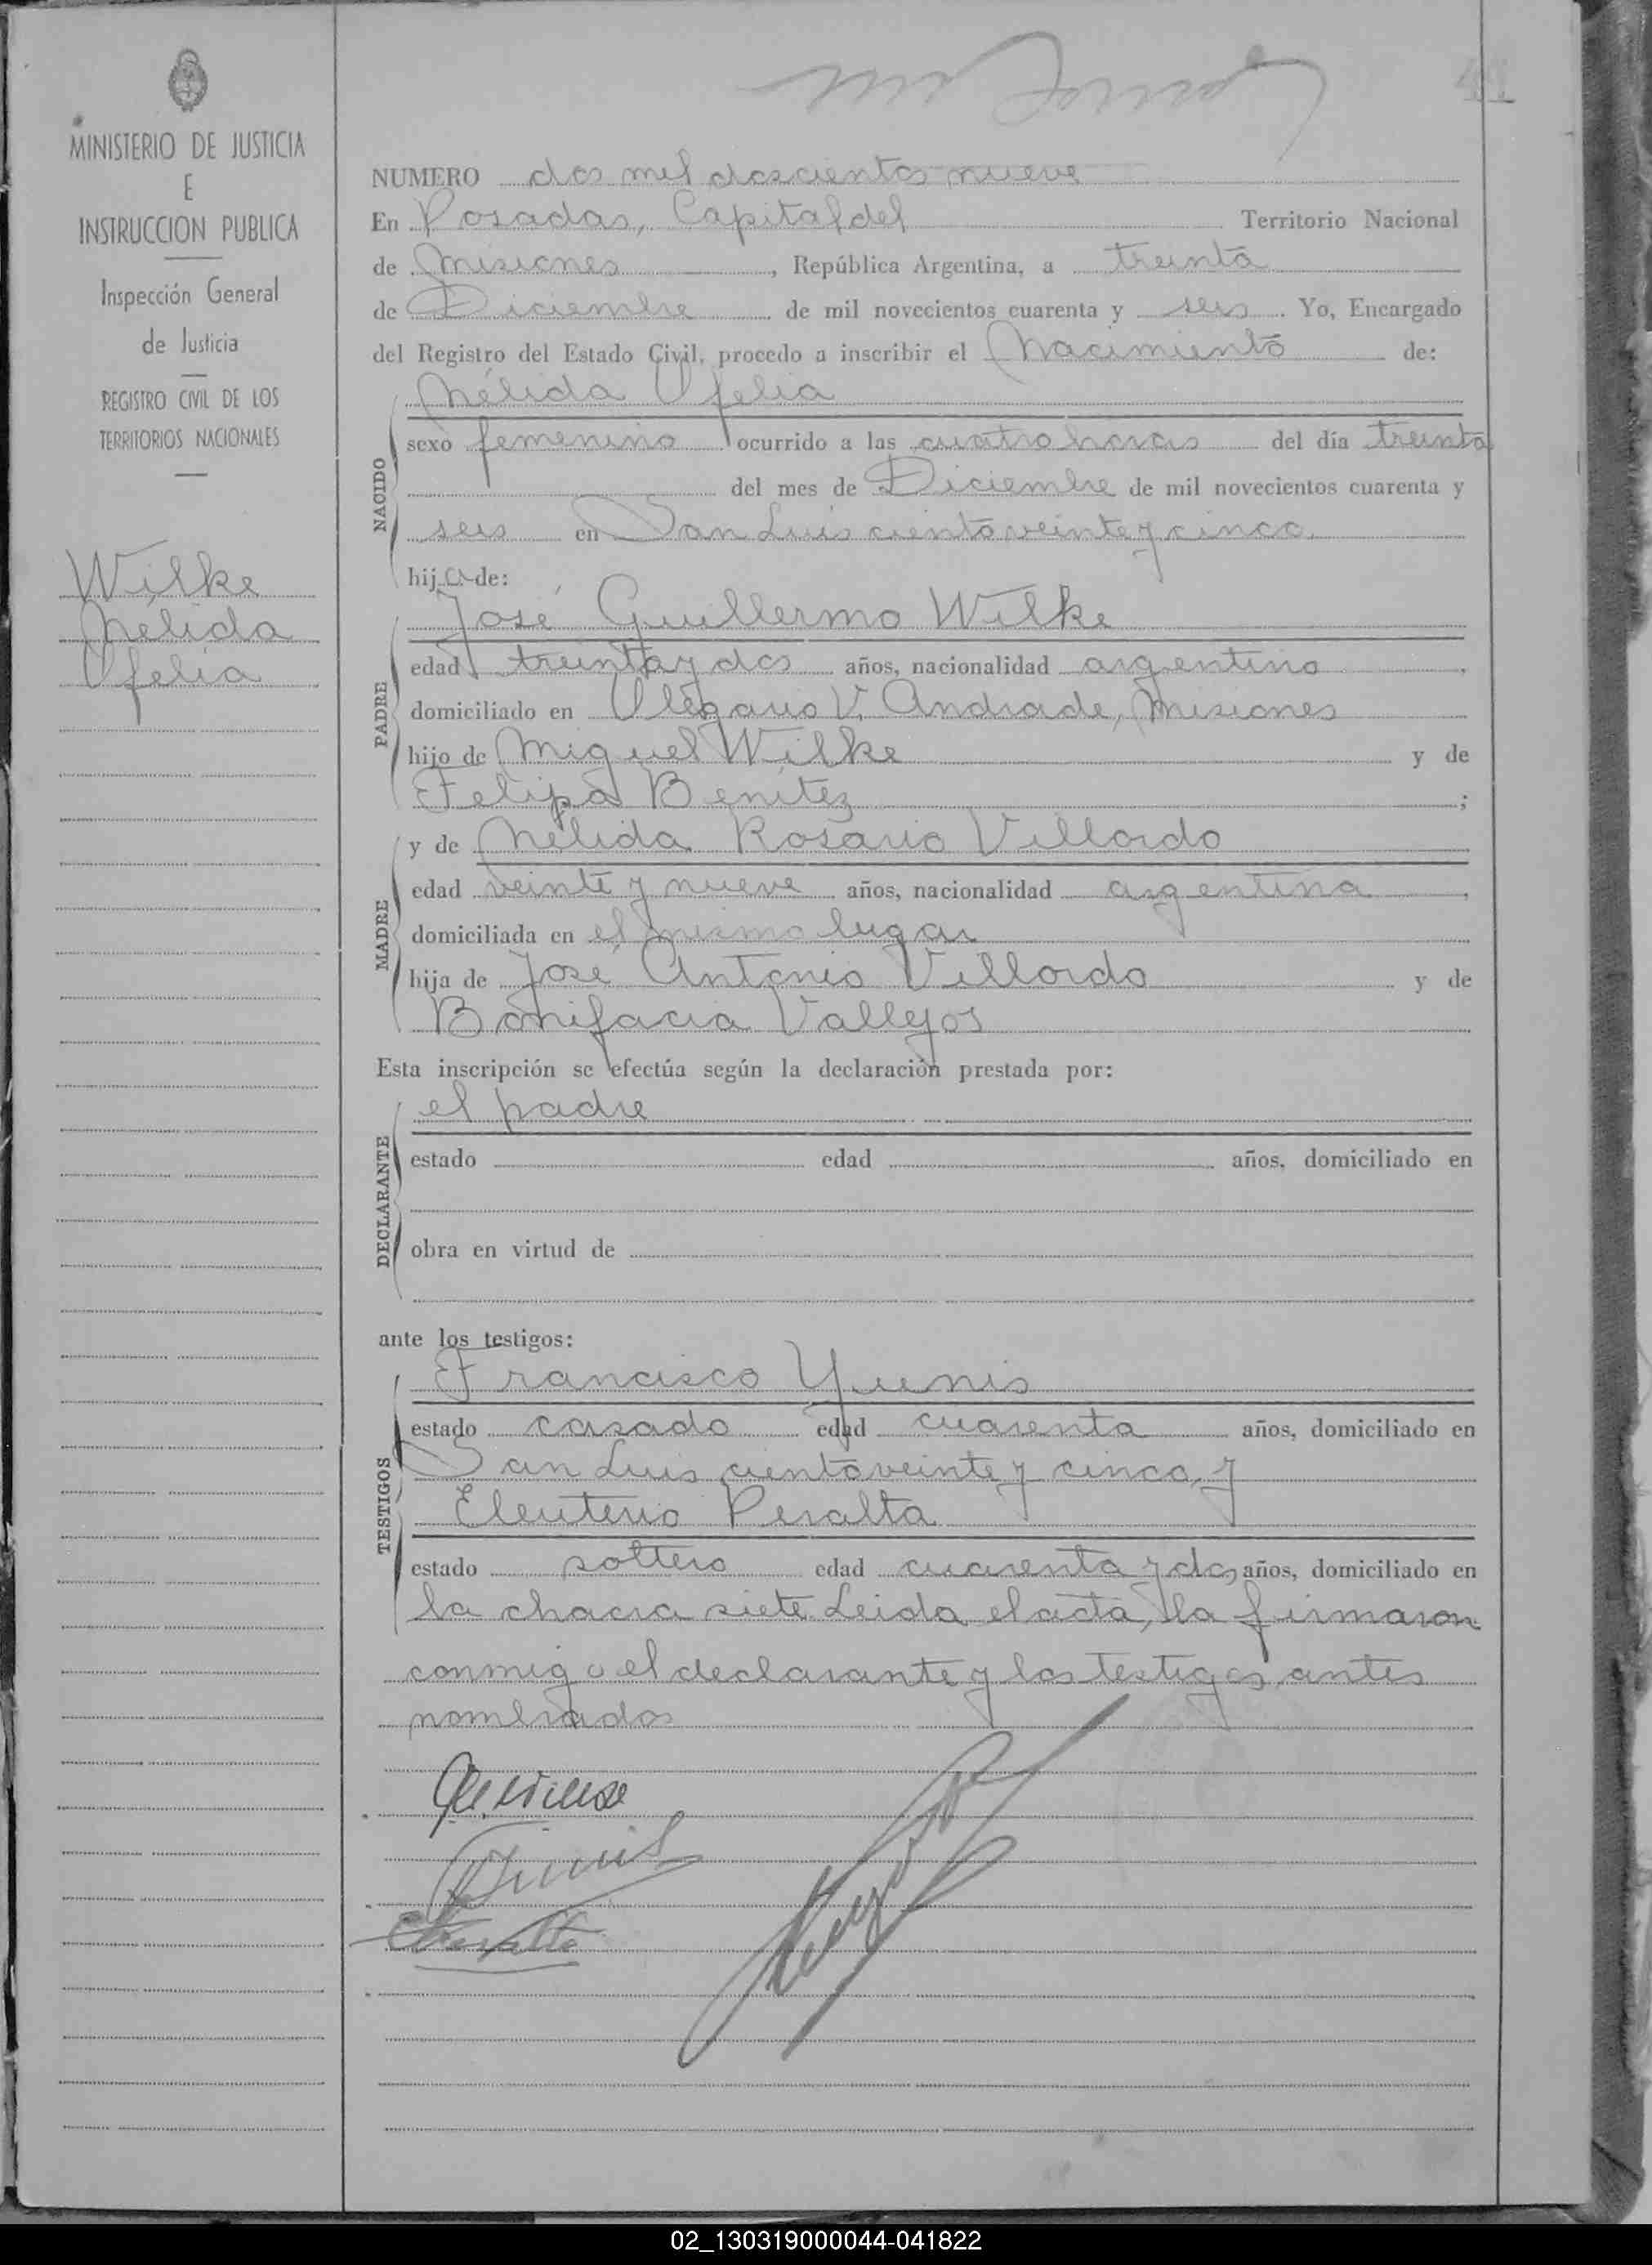 MINISTERIO DE JUSTICIA
E
INSTRUCCION PUBLICA
Inspección General
de Justicia
REGISTRO CIVIL DE LOS
TERRITORIOS NACIONALES
Wilke
Nelida
Ofelia
NUMERO dos mil doscientos nueve
En Posadas, Capital del Territorio Nacional
de Misiones, República Argentina, a treinta
de Diciembre de mil novecientos cuarenta y seis. Yo, Encargado
del Registro del Estado Civil, procedo a inscribir el Nacimiento de:
NACIDO
Nélida Ofelia
sexo femenino ocurrido a las cuatro horas del día treinta
del mes de Diciembre de mil novecientos cuarenta y
seis en San Luis ciento veinte y cinco,
hija de:
PADRE
José Guillermo Wilke
edad treinta y dos años, nacionalidad argentino,
domiciliado en Olegario V. Andrade, Misiones
hijo de Miguel Wilke y de
Felipa Benítez;
MADRE
y de Nélida Rosario Villordo
edad veinte y nueve años, nacionalidad argentina,
domiciliada en el mismo lugar
hija de José Antonio Villordo y de
Bonifacia Vallejos
Esta inscripción se efectúa según la declaración prestada por:
DECLARANTE
el padre
estado edad años, domiciliado en
obra en virtud de
ante los testigos:
TESTIGOS
Francisco Yunis
estado casado edad cuarenta años, domiciliado en
San Luis ciento veinte y cinco, y
Eleuterio Peralta
estado soltero edad cuarenta y dos años, domiciliado en
la chacra siete. Leida el acta, la firmaron
conmigo el declarante y los testigos antes
nombrados
02_130319000044-041822